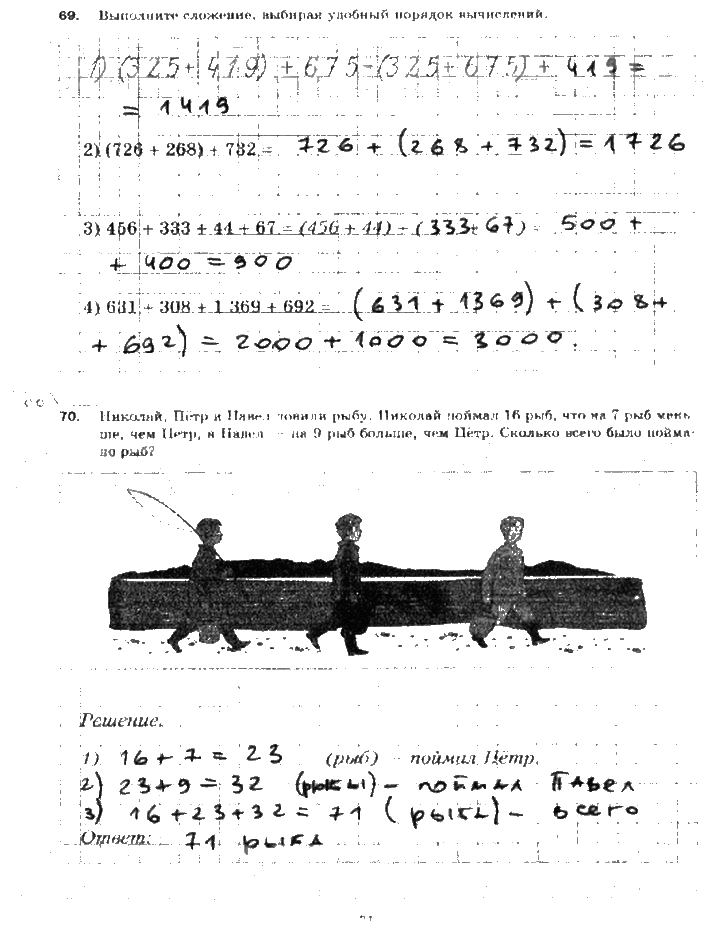 69. Выполните сложение, выбирая удобный порядок вычислений.
1) (325 + 419) + 675 = (325 + 675) + 419 =
= 1419
2) (726 + 268) + 732 = 726 + (268 + 732) = 1726
3) 456 + 333 + 44 + 67 = (456 + 44) + (333 + 67) = 500 +
+ 400 = 900
4) 631 + 308 + 1 369 + 692 = (631 + 1369) + (308 +
+ 692) = 2000 + 1000 = 3000.
70. Николай, Пётр и Павел ловили рыбу. Николай поймал 16 рыб, что на 7 рыб мень-
ше, чем Петр, а Павел – на 9 рыб больше, чем Пётр. Сколько всего было пойма-
но рыб?
Решение.
1) 16 + 7 = 23 (рыб) – поймал Пётр.
2) 23 + 9 = 32 (рыбы) – поймал Павел
3) 16 + 23 + 32 = 71 (рыба) – всего
Ответ: 71 рыба